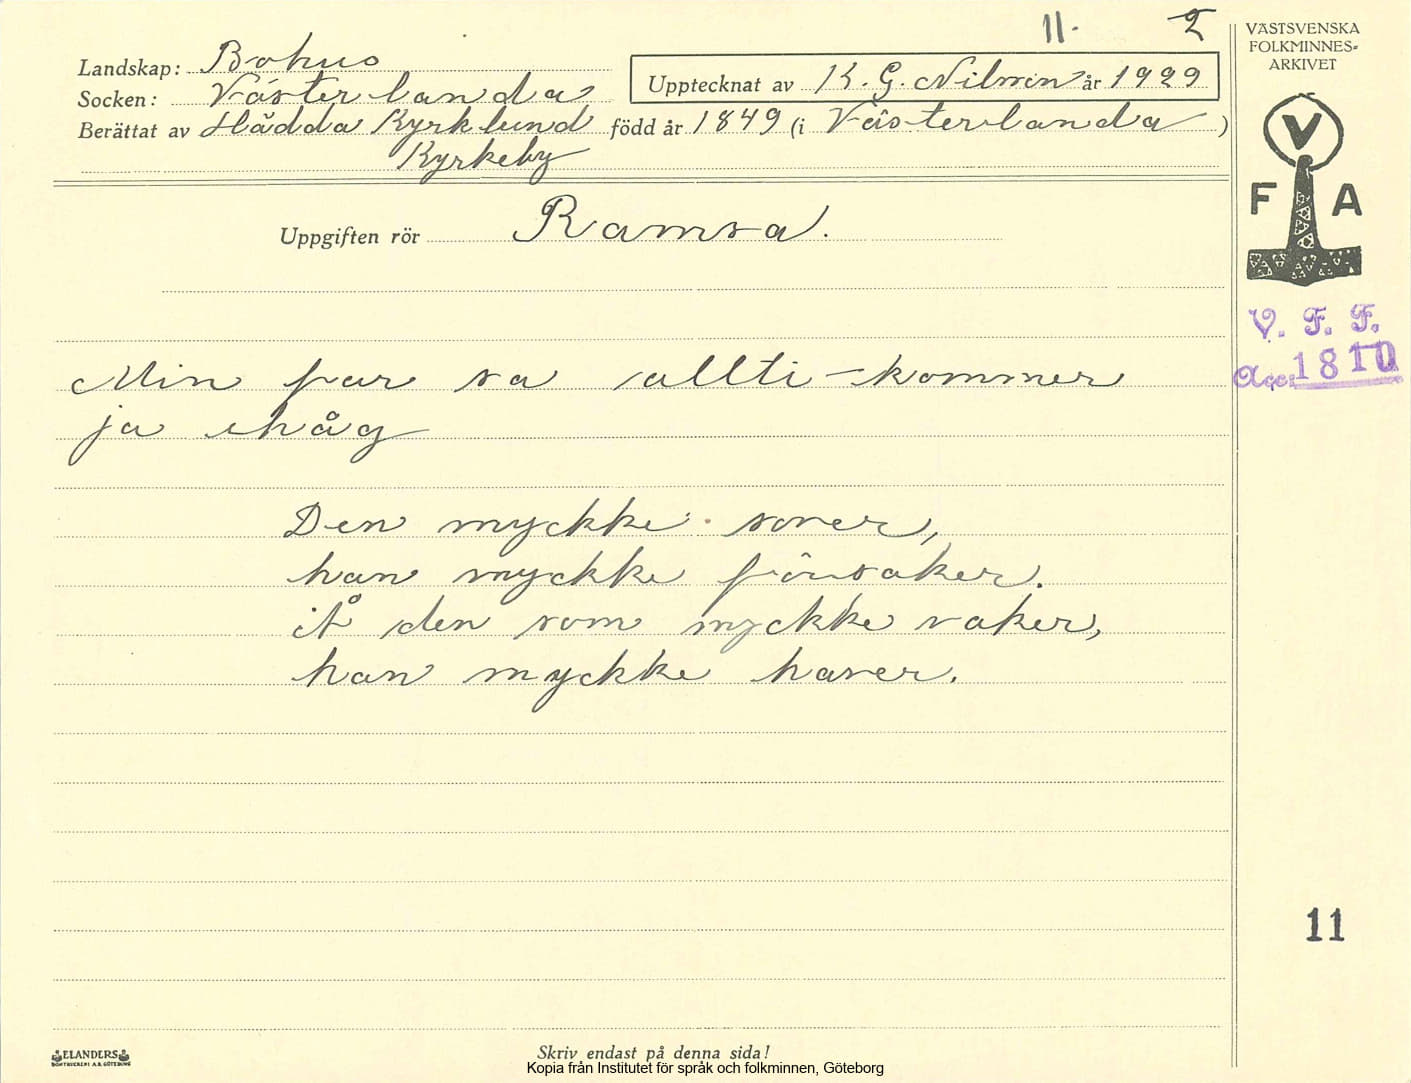 11. 2
Landskap: Bohus
Socken: Västerlanda
Upptecknat av K. G. Nilson år 1929
Berättat av Hädda Kyrklund född år 1849 (i Västerlanda)
Kyrkeby
VÄSTSVENSKA
FOLKMINNES-
ARKIVET
V
F A
Uppgiften rör Ramsa.
V. F. F.
Acc: 1810
Min far sa allti kommer
ja ihåg
Den myckke sover,
han myckke försaker.
Å den som myckke vaker,
han myckke haver.
11
ELANDERS
BOKTRYCKERI A.B. GÖTEBORG
Skriv endast på denna sida!
Kopia från Institutet för språk och folkminnen, Göteborg